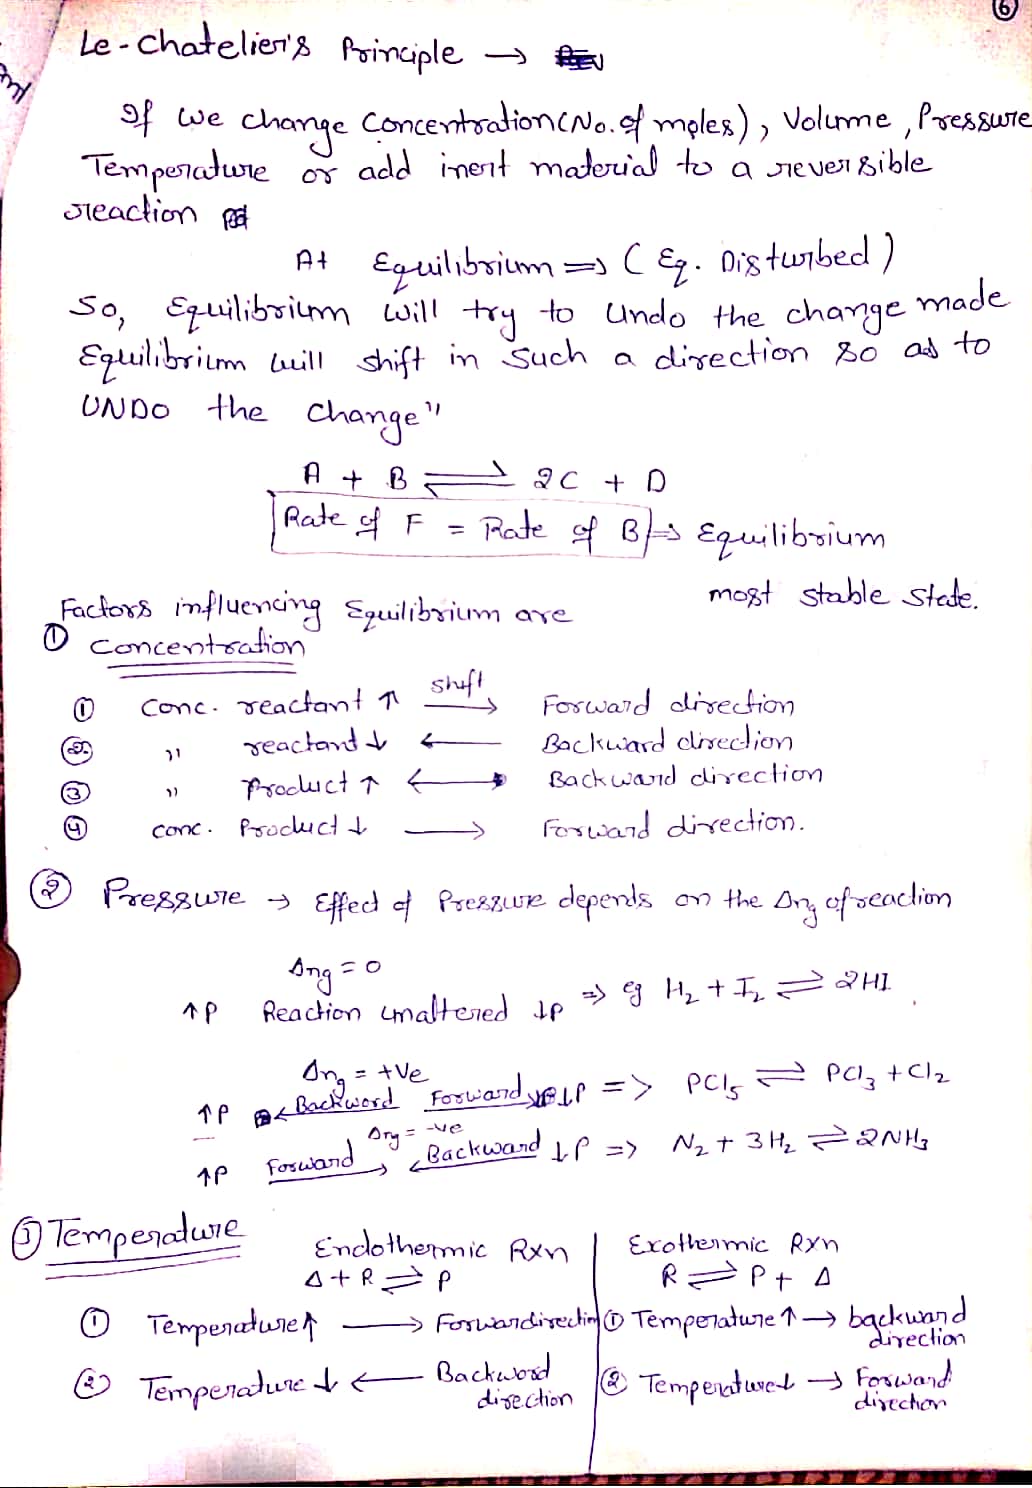 6
Le-Chatelier's Principle →
If we change Concentration (No. of moles), Volume, Pressure
Temperature or add inert material to a reversible
reaction
At Equilibrium ⇒ (Eq. Disturbed)
So, Equilibrium will try to Undo the change made
Equilibrium will shift in such a direction so as to
UNDO the change"
A + B ⇌ 2C + D
Rate of F = Rate of B ⇒ Equilibrium
most stable state.
Factors influencing Equilibrium are
① Concentration
① Conc. reactant ↑ shift → Forward direction
② " reactant ↓ ← Backward direction
③ " Product ↑ ← Backward direction
④ conc. Product ↓ → Forward direction.
② Pressure → Effect of Pressure depends on the Δng of reaction
Δng = 0
↑P Reaction unaltered ↓P ⇒ eg H₂ + I₂ ⇌ 2HI
Δng = +ve
↑P ← Backword Forward ↓P => PCl₅ ⇌ PCl₃ + Cl₂
Δng = -ve
↑P Forward → ← Backward ↓P => N₂ + 3H₂ ⇌ 2NH₃
③ Temperature
Endothermic Rxn | Exothermic Rxn
Δ + R ⇌ P | R ⇌ P + Δ
① Temperature ↑ → Forwardirection | ① Temperature ↑ → backward direction
② Temperature ↓ ← Backword direction | ② Temperature ↓ → Forward direction